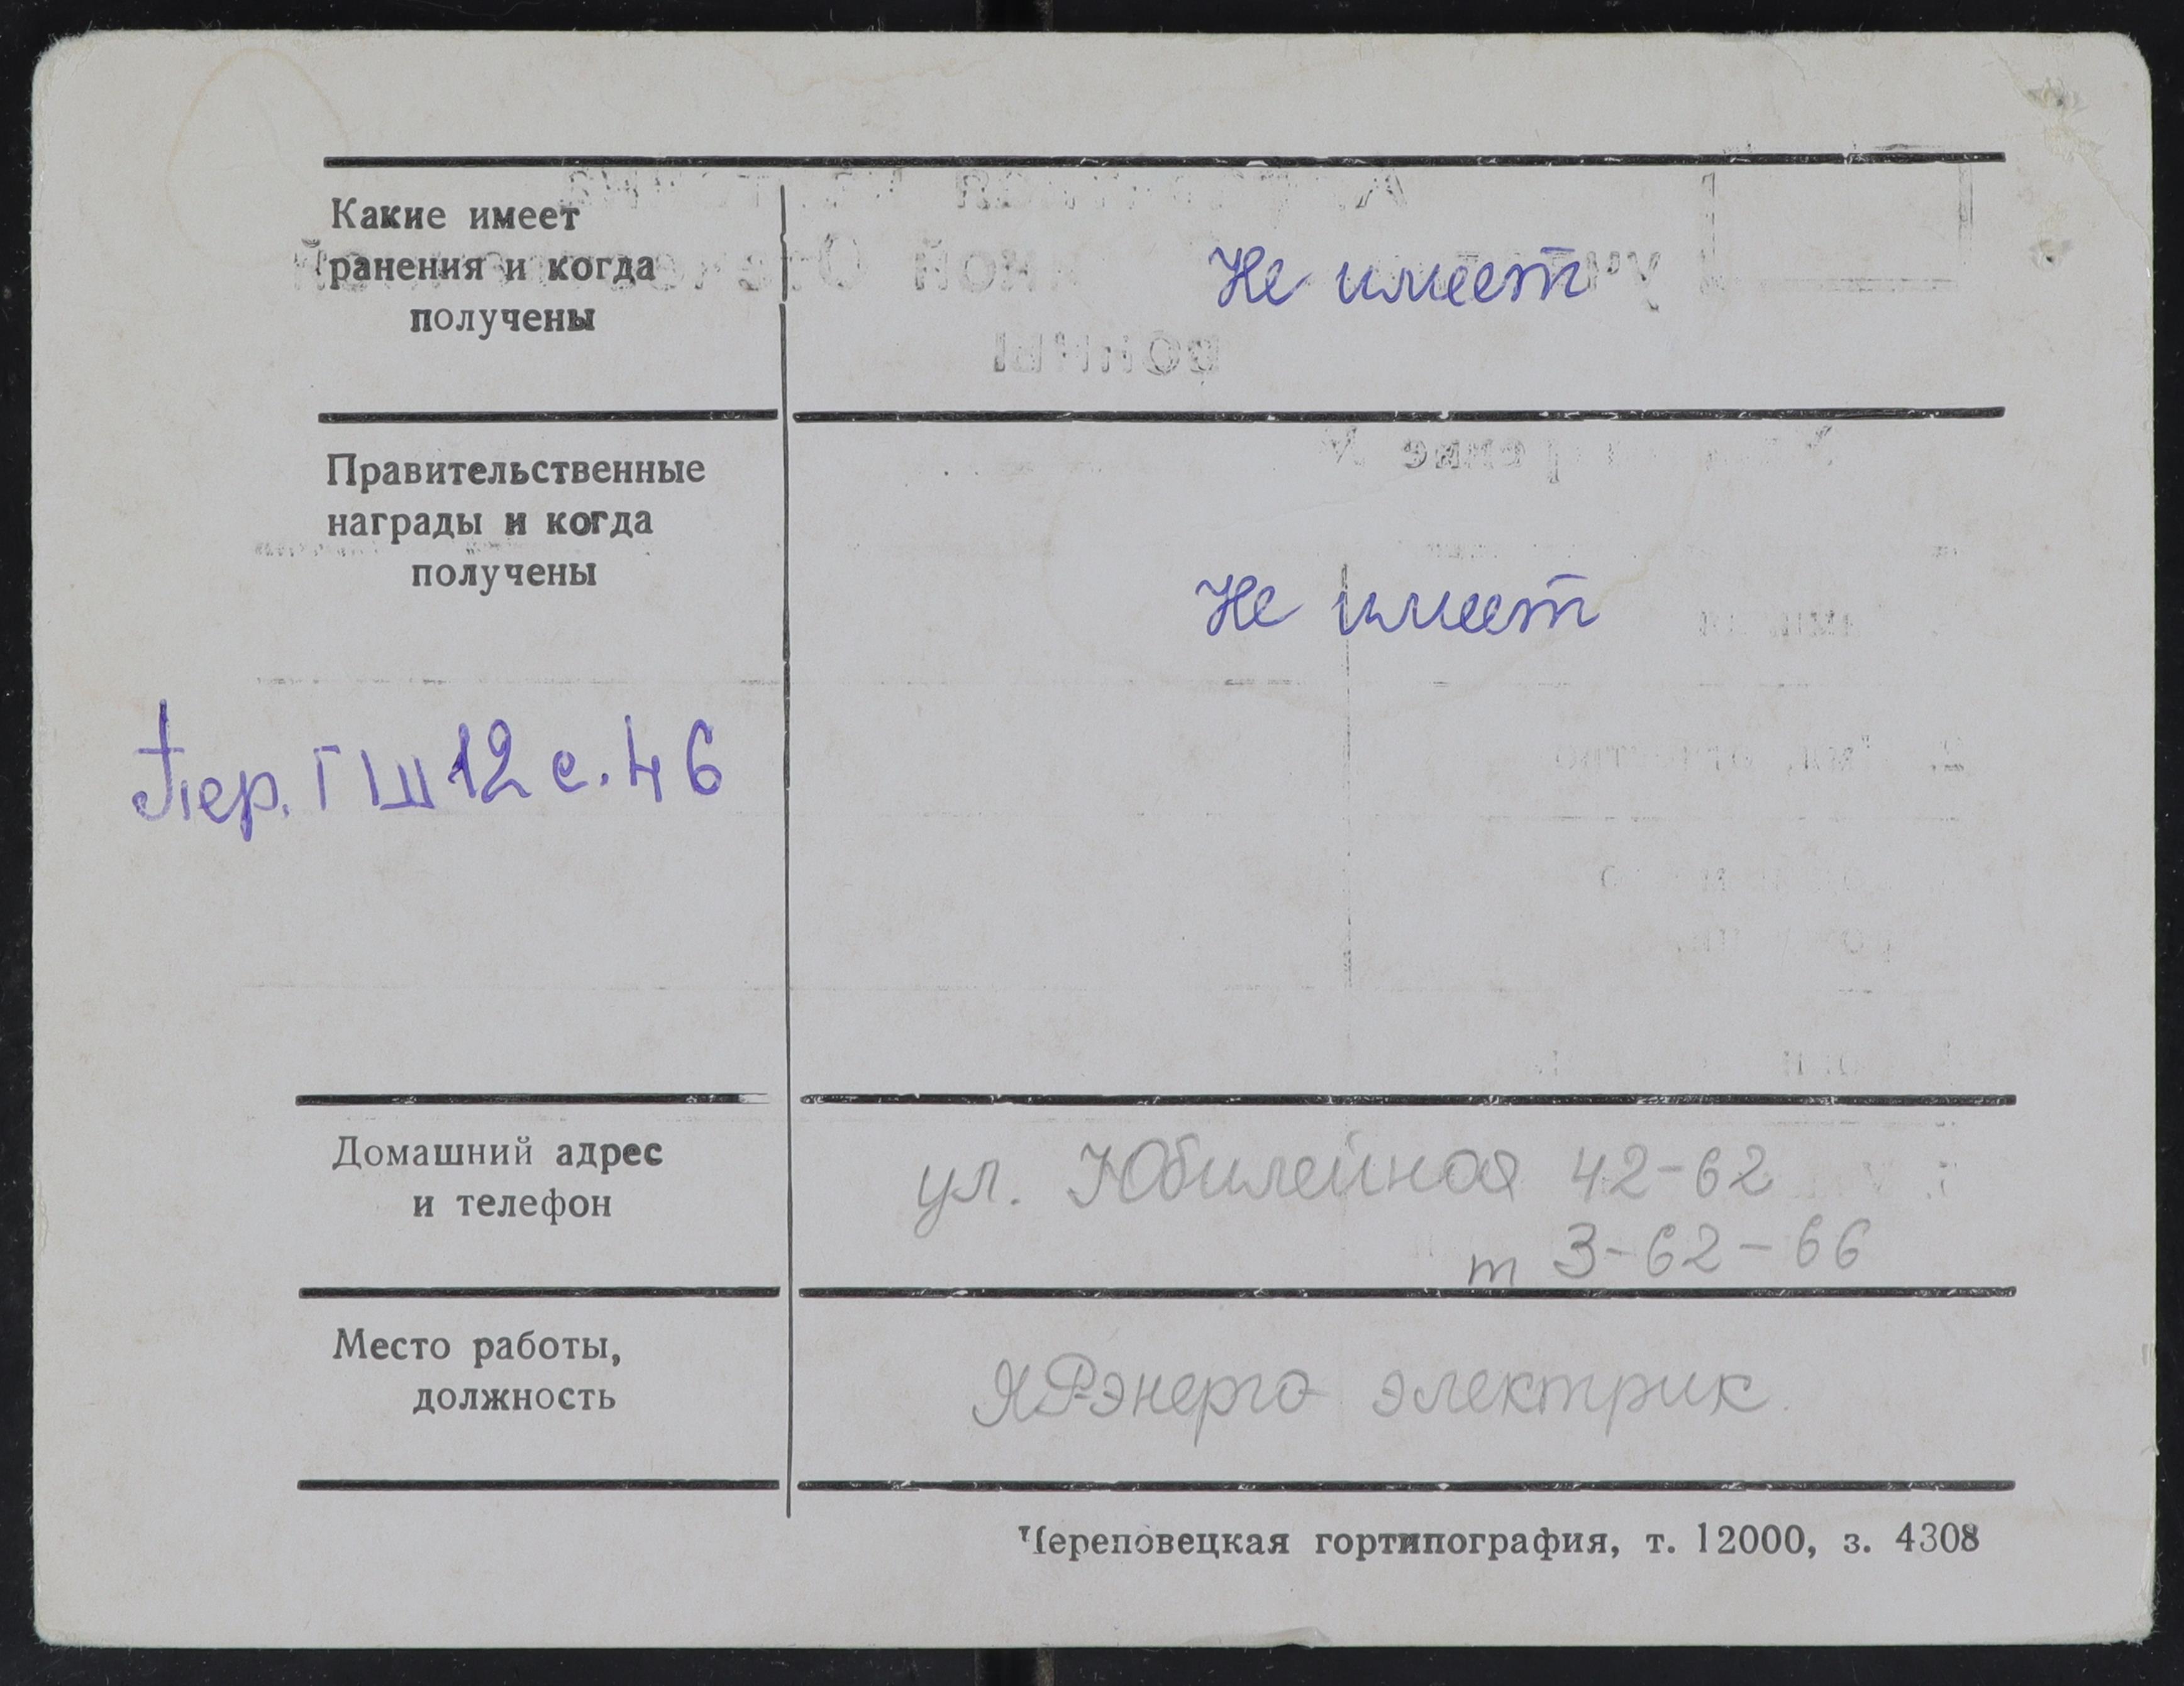 Какие имеет
ранения и когда
получены
Не имеет
Правительственные
награды и когда
получены
Не имеет
пер. ГШ 12 с. 46
Домашний адрес
и телефон
ул. Юбилейная 42-62
т 3-62-66
Место работы,
должность
энерго электрик
Череповецкая гортипография, т. 12000, з. 4308